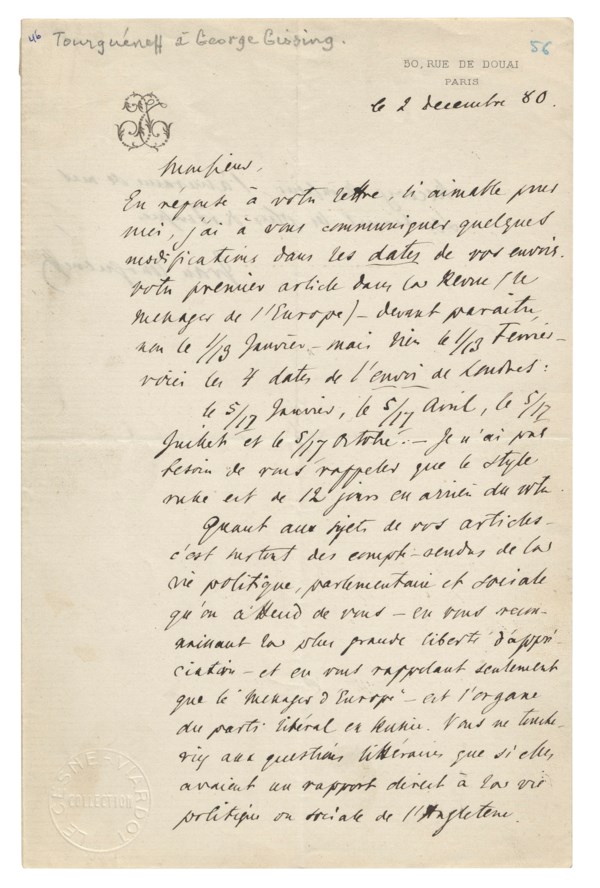 46 Tourguéneff à George Gissing.
56
50, RUE DE DOUAI
PARIS
le 2 décembre 80.
Monsieur,
En réponse à votre lettre, si aimable pour
moi, j'ai à vous communiquer quelques
modifications dans les dates de vos envois.
Votre premier article dans la Revue (le
Messager de l'Europe) – devant paraître,
non le 1/13 Janvier – mais bien le 1/13 Février –
voici les 4 dates de l'envoi de Londres :
le 5/17 Janvier, le 5/17 Avril, le 5/17
Juillet et le 5/17 Octobre. – Je n'ai pas
besoin de vous rappeler que le style
russe est de 12 jours en arrière du vôtre.
Quant aux sujets de vos articles –
c'est surtout des comptes-rendus de la
vie politique, parlementaire et sociale
qu'on attend de vous – en vous recon-
naissant la plus grande liberté d'appré-
ciation – et en vous rappelant seulement
que le "Messager d'Europe" – est l'organe
du parti libéral en Russie. Vous ne touche-
riez aux questions littéraires que si elles
avaient un rapport direct à la vie
politique ou sociale de l'Angleterre.
LE CESNE-VIARDOT
COLLECTION